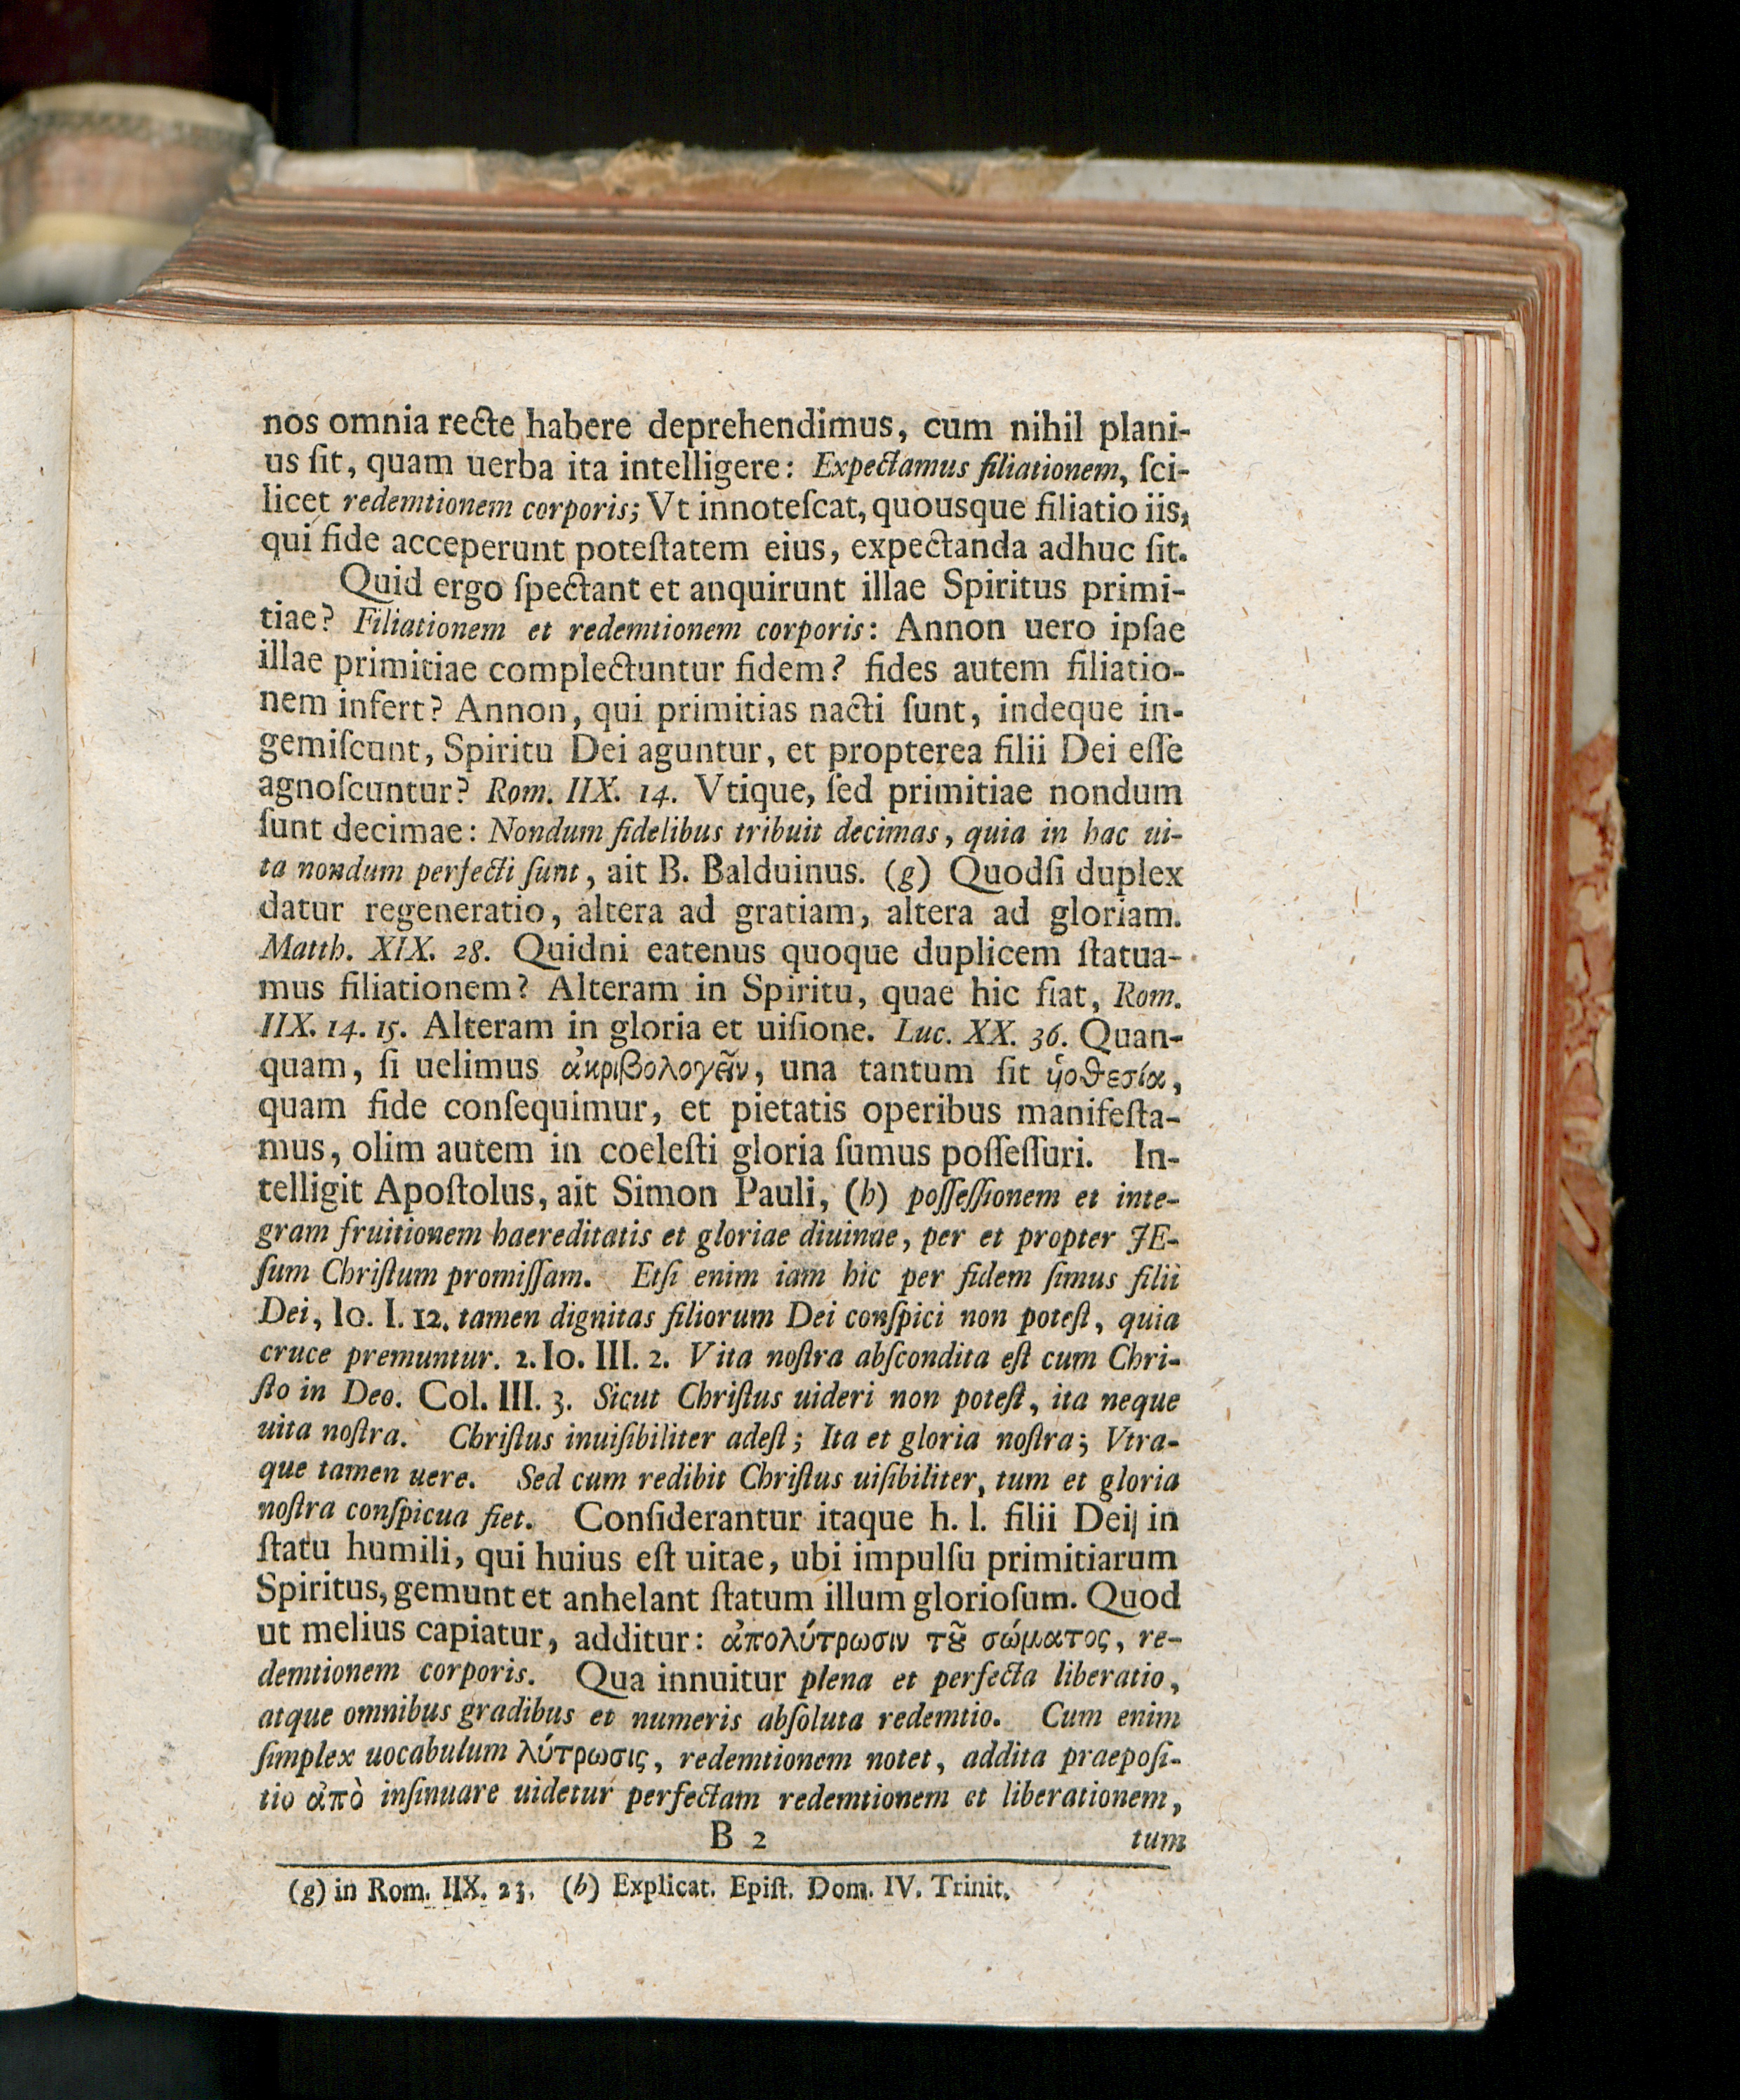 nos omnia recte habere deprehendimus, cum nihil plani-
us ſit, quam uerba ita intelligere: Expectamus filiationem, ſci-
licet redemtionem corporis; Vt innoteſcat, quousque filiatio iis,
qui fide acceperunt poteſtatem eius, expectanda adhuc ſit.
Quid ergo ſpectant et anquirunt illae Spiritus primi-
tiae? Filiationem et redemtionem corporis: Annon uero ipſae
illae primitiae complectuntur fidem? fides autem filiatio-
nem infert? Annon, qui primitias nacti ſunt, indeque in-
gemiſcunt, Spiritu Dei aguntur, et propterea filii Dei eſſe
agnoſcuntur? Rom. IIX. 14. Vtique, ſed primitiae nondum
ſunt decimae: Nondum fidelibus tribuit decimas, quia in hac ui-
ta nondum perfecti ſunt, ait B. Balduinus. (g) Quodſi duplex
datur regeneratio, altera ad gratiam, altera ad gloriam.
Matth. XIX. 28. Quidni eatenus quoque duplicem ſtatua-
mus filiationem? Alteram in Spiritu, quae hic fiat, Rom.
IIX. 14. 15. Alteram in gloria et uiſione. Luc. XX. 36. Quan-
quam, ſi uelimus ἀκριβολογεῖν, una tantum ſit ὑοθεσία,
quam fide conſequimur, et pietatis operibus manifeſta-
mus, olim autem in coeleſti gloria ſumus poſſeſſuri. In-
telligit Apoſtolus, ait Simon Pauli, (h) poſſeſſionem et inte-
gram fruitionem haereditatis et gloriae diuinae, per et propter JE-
ſum Chriſtum promiſſam. Etſi enim iam hic per fidem ſimus filii
Dei, Io. I. 12. tamen dignitas filiorum Dei conſpici non poteſt, quia
cruce premuntur. 2. Io. III. 2. Vita noſtra abſcondita eſt cum Chri-
ſto in Deo. Col. III. 3. Sicut Chriſtus uideri non poteſt, ita neque
uita noſtra. Chriſtus inuiſibiliter adeſt; Ita et gloria noſtra; Vtra-
que tamen uere. Sed cum redibit Chriſtus uiſibiliter, tum et gloria
noſtra conſpicua fiet. Conſiderantur itaque h. l. filii Dei in
ſtatu humili, qui huius eſt uitae, ubi impulſu primitiarum
Spiritus, gemunt et anhelant ſtatum illum glorioſum. Quod
ut melius capiatur, additur: ἀπολύτρωσιν τȣ͂ σώματος, re-
demtionem corporis. Qua innuitur plena et perfecta liberatio,
atque omnibus gradibus et numeris abſoluta redemtio. Cum enim
ſimplex uocabulum λύτρωσις, redemtionem notet, addita praepoſi-
tio ἀπὸ inſinuare uidetur perfectam redemtionem et liberationem,
B 2 tum
(g) in Rom. IIX. 23. (h) Explicat. Epiſt. Dom. IV. Trinit.